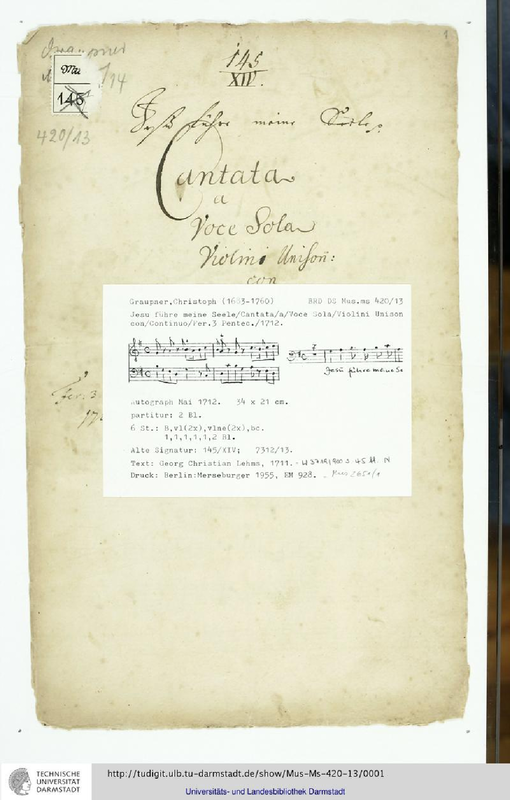 1
145
XIV.
Mus
145
420/13
Cantata
a
Voce Sola
Violini Unison:
con
Graupner,Christoph (1683-1760) BRD DS Mus.ms 420/13
Jesu führe meine Seele/Cantata/a/Voce Sola/Violini Unison
con/Continuo/Fer.3 Pentec./1712.
Jesu führe meine Se
autograph Mai 1712. 34 x 21 cm.
partitur: 2 Bl.
6 St.: B,vl(2x),vlne(2x),bc.
1,1,1,1,1,2 Bl.
Alte Signatur: 145/XIV; 7312/13.
Text: Georg Christian Lehms, 1711.
Druck: Berlin:Merseburger 1955, EM 928.
Fer. 3
TECHNISCHE
UNIVERSITÄT
DARMSTADT
http://tudigit.ulb.tu-darmstadt.de/show/Mus-Ms-420-13/0001
Universitäts- und Landesbibliothek Darmstadt